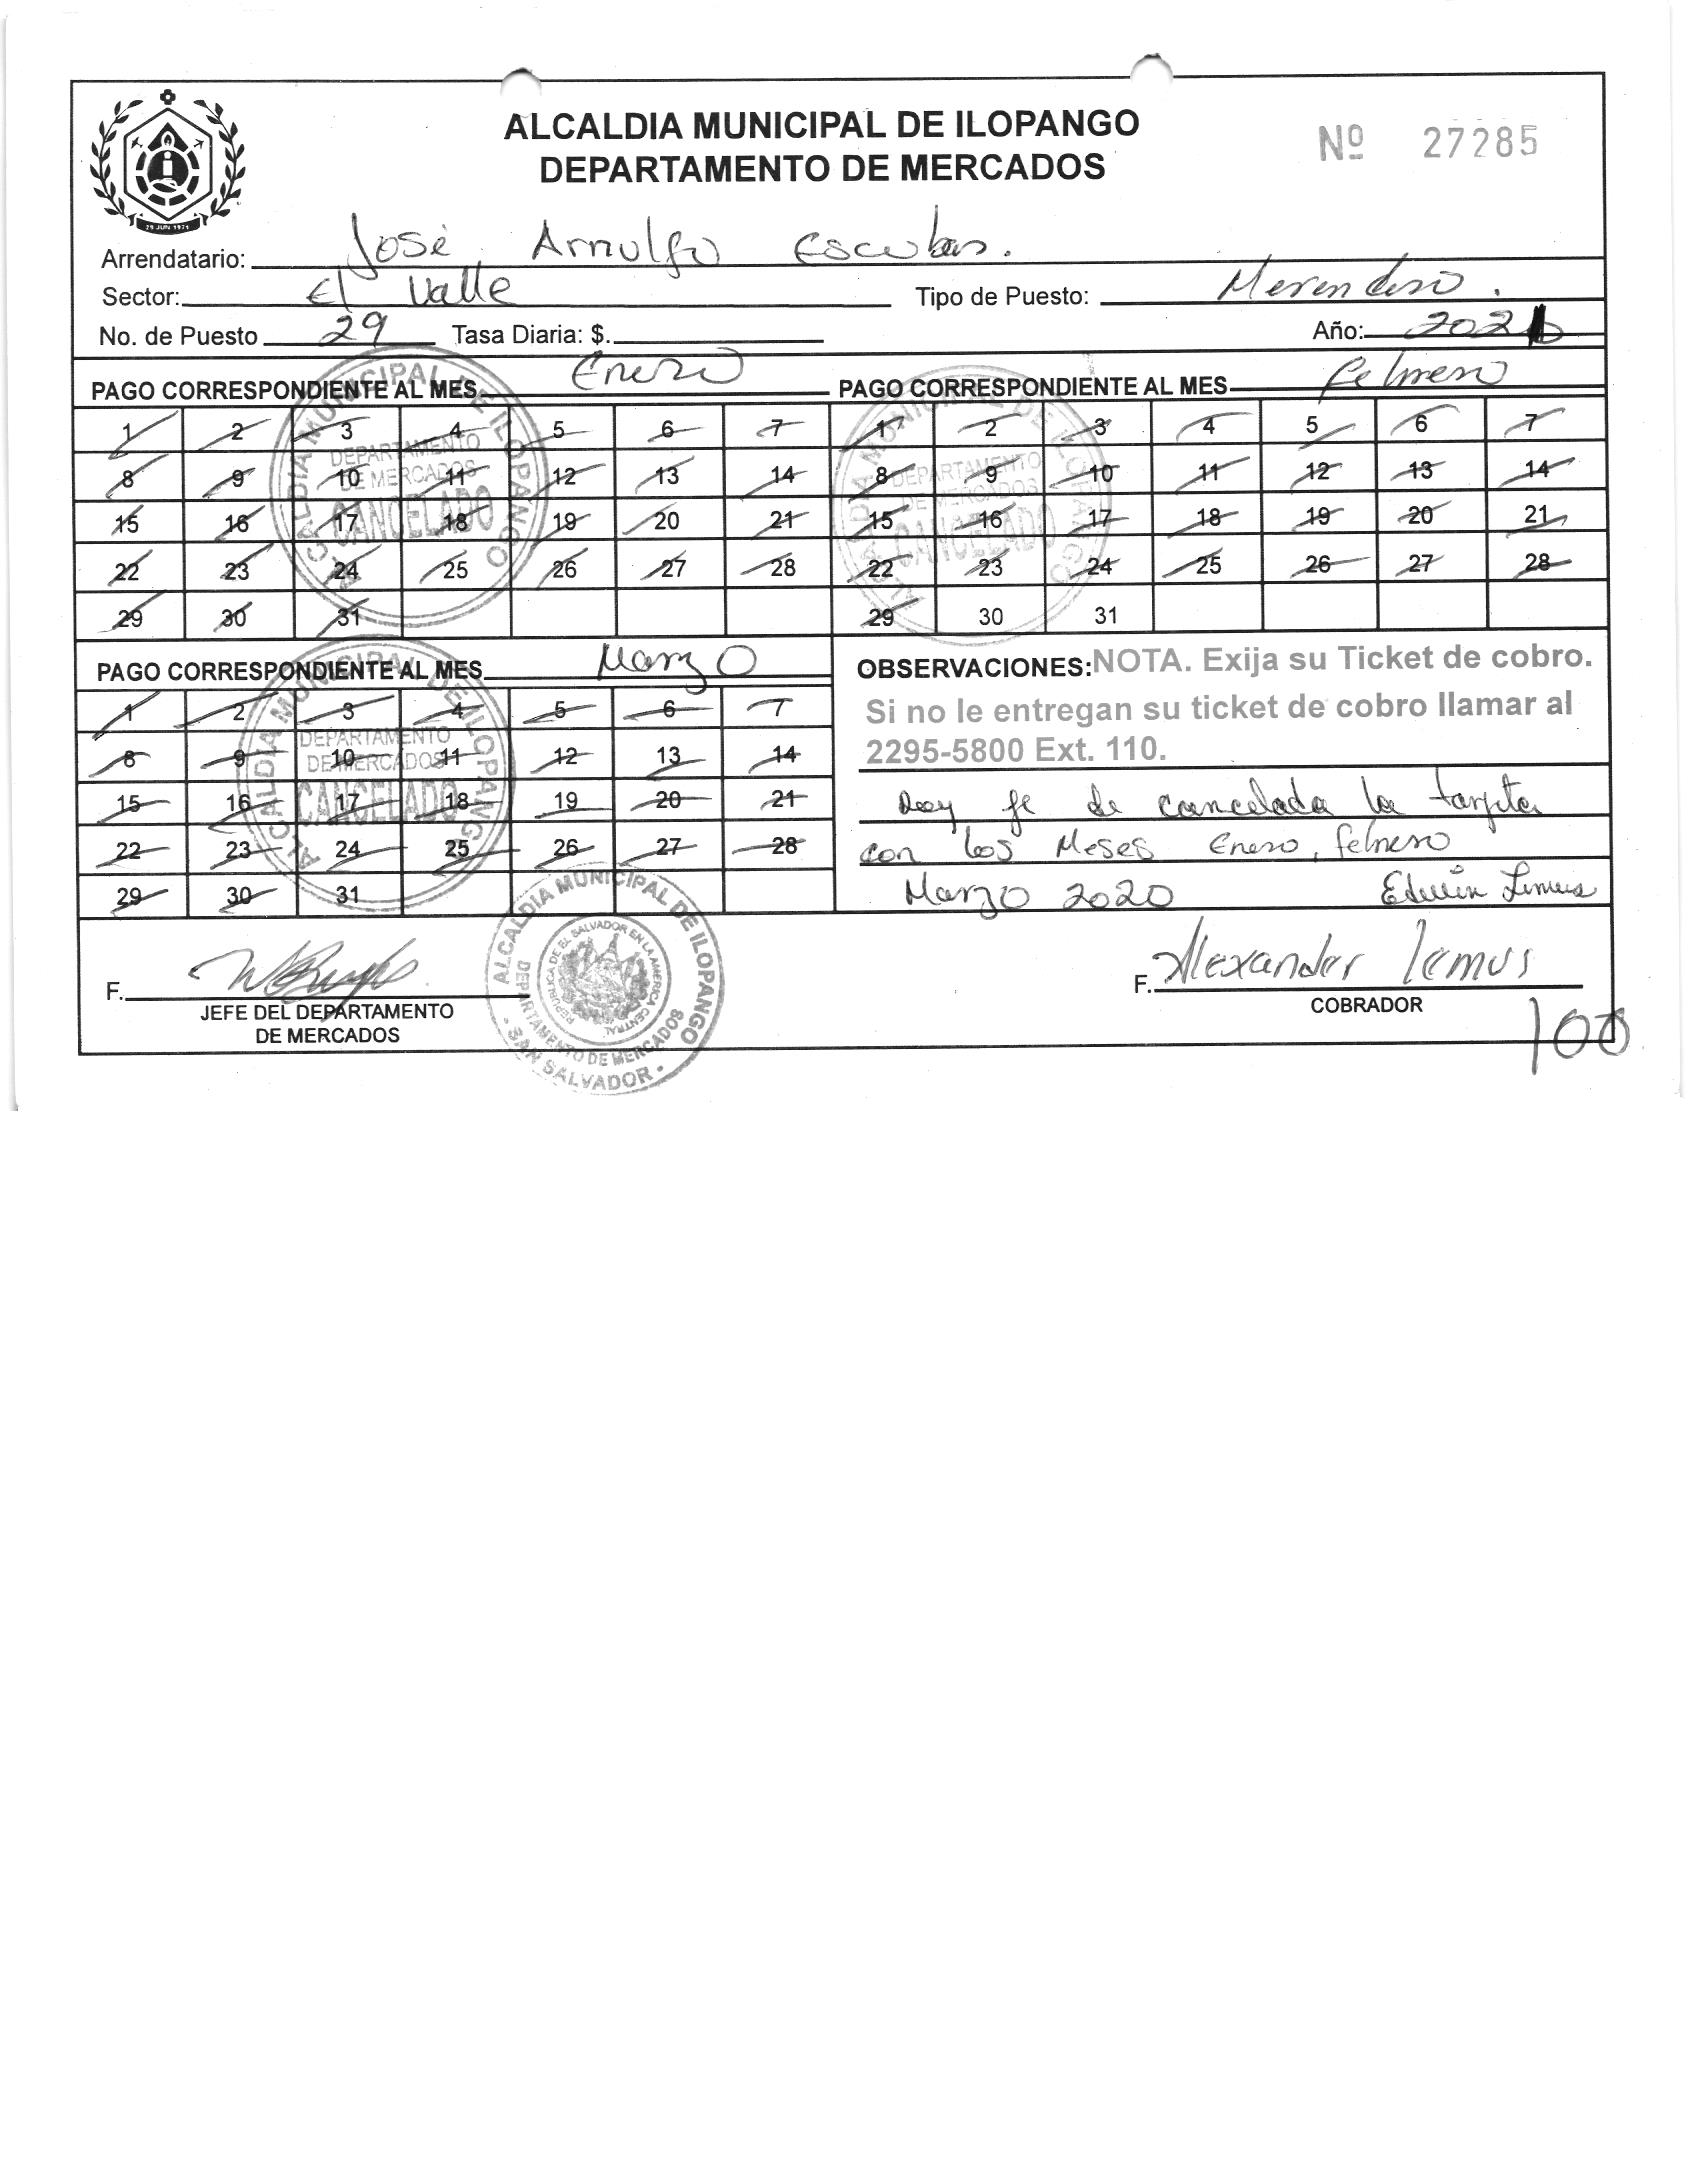 ALCALDIA MUNICIPAL DE ILOPANGO
DEPARTAMENTO DE MERCADOS
Nº 27285
29 JUN 1971
Arrendatario: José Arnulfo Escobar.
Sector: El Valle Tipo de Puesto: Merendero.
No. de Puesto 29 Tasa Diaria: $. Año: 202
PAGO CORRESPONDIENTE AL MES Enero PAGO CORRESPONDIENTE AL MES Febrero
1 2 3 4 5 6 7 1 2 3 4 5 6 7
8 9 10 11 12 13 14 8 9 10 11 12 13 14
15 16 17 18 19 20 21 15 16 17 18 19 20 21
22 23 24 25 26 27 28 22 23 24 25 26 27 28
29 30 31 29 30 31
ALCALDIA MUNICIPAL DE ILOPANGO
DEPARTAMENTO
DE MERCADOS
CANCELADO
ALCALDIA MUNICIPAL DE ILOPANGO
DEPARTAMENTO
DE MERCADOS
CANCELADO
PAGO CORRESPONDIENTE AL MES Marzo
1 2 3 4 5 6 7
8 9 10 11 12 13 14
15 16 17 18 19 20 21
22 23 24 25 26 27 28
29 30 31
ALCALDIA MUNICIPAL DE ILOPANGO
DEPARTAMENTO
DE MERCADOS
CANCELADO
OBSERVACIONES: NOTA. Exija su Ticket de cobro.
Si no le entregan su ticket de cobro llamar al
2295-5800 Ext. 110.
Doy fe de cancelada la tarjeta
con los Meses Enero, febrero
Marzo 2020 Edwin Lemus
F.
JEFE DEL DEPARTAMENTO
DE MERCADOS
ALCALDIA MUNICIPAL DE ILOPANGO
DEPARTAMENTO DE MERCADOS
REPUBLICA DE EL SALVADOR EN LA AMERICA CENTRAL
SAN SALVADOR
F. Alexander lemus
COBRADOR
100